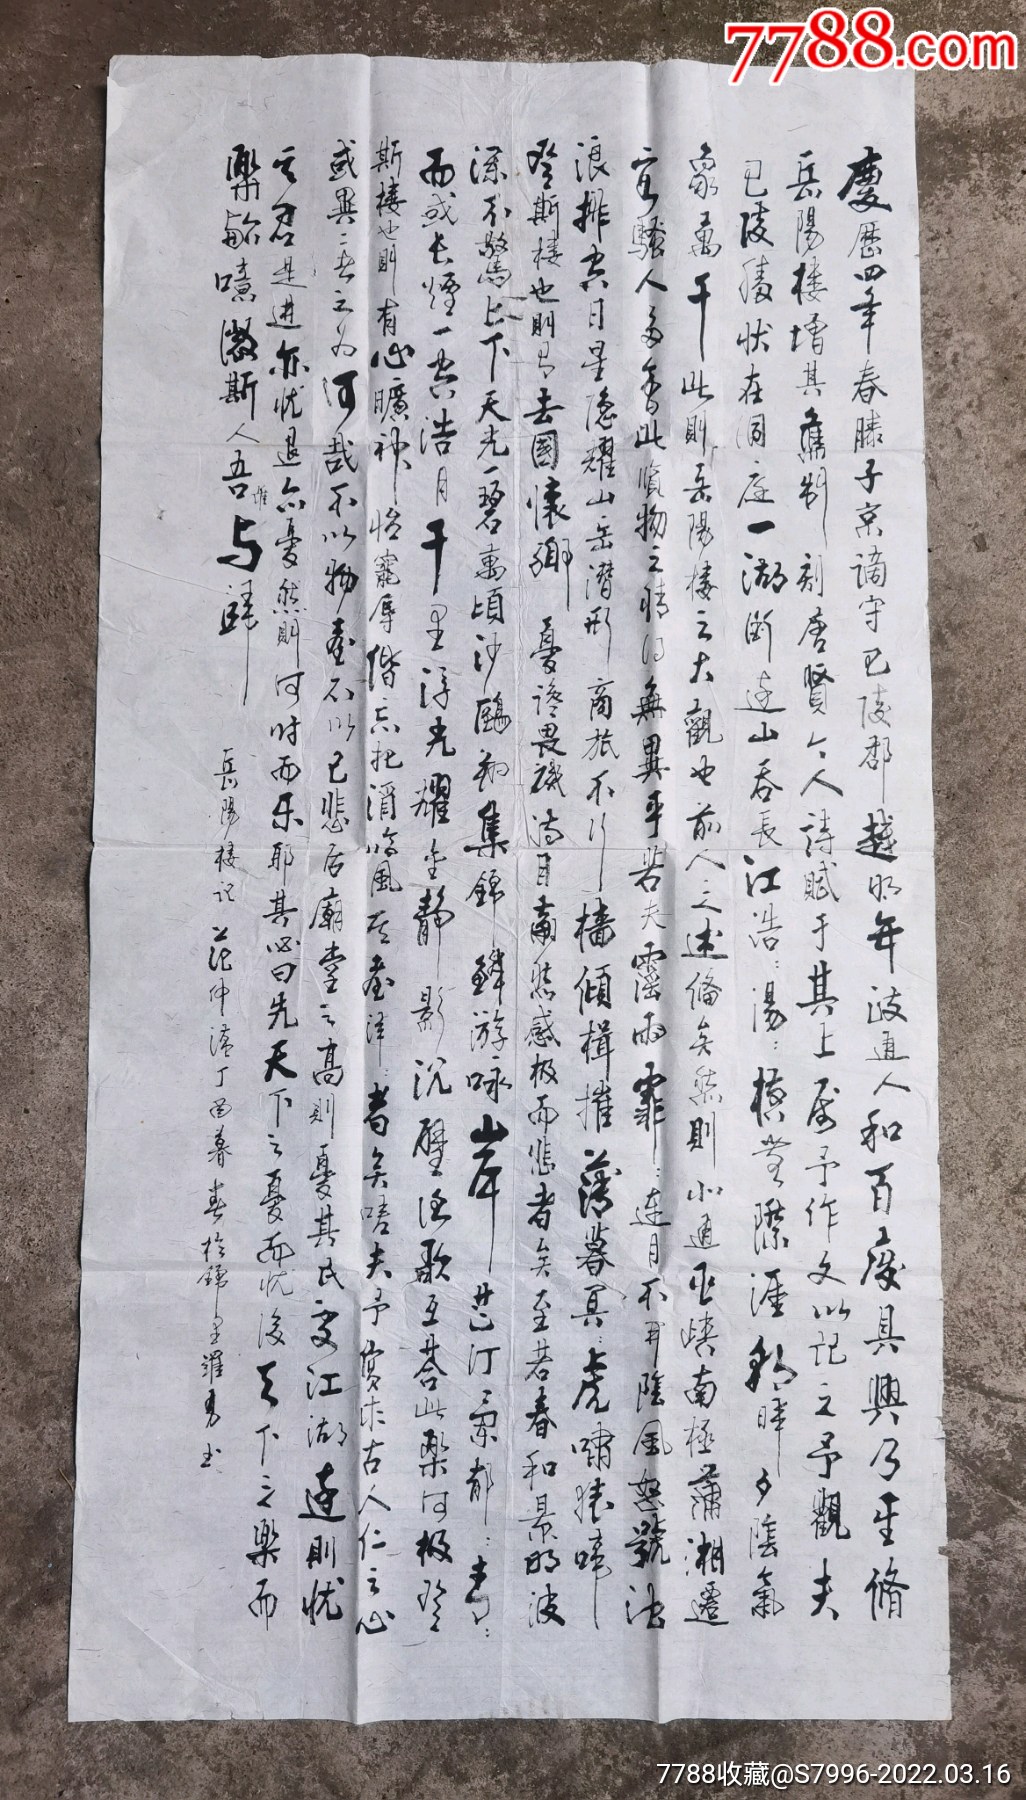 7788.com
慶歷四年春滕子京謫守巴陵郡越明年政通人和百廢具興乃重脩
岳陽樓增其舊制刻唐賢今人詩賦于其上屬予作文以記之予觀夫
巴陵勝狀在洞庭一湖銜遠山吞長江浩:湯:橫無際涯朝暉夕陰氣
象萬千此則岳陽樓之大觀也前人之述備矣然則北通巫峽南極瀟湘遷
客騷人多會此覽物之情得無異乎若夫霪雨霏:連月不開陰風怒號濁
浪排空日星隱耀山岳潛形商旅不行檣傾楫摧薄暮冥:虎嘯猿啼
登斯樓也則有去國懷鄉憂讒畏譏滿目蕭然感极而悲者矣至若春和景明波
瀾不驚上下天光一碧萬頃沙鷗翔集錦鱗游咏岸芷汀蘭郁:青:
而或長煙一空浩月千里浮光耀金靜影沉壁漁歌互荅此樂何极登
斯樓也則有心曠神怡寵辱偕忘把酒臨風其喜洋:者矣嗟夫予嘗求古人仁之心
或異二者之为何哉不以物喜不以己悲居廟堂之高則憂其民處江湖遠則忧
之君是進亦忧退亦憂然則何时而乐耶其必曰先天下之憂而忧後天下之樂而
樂歟噫微斯人吾誰与歸
岳陽樓记 范仲淹丁酉暮春於錦里羅勇书
7788收藏@S7996-2022.03.16